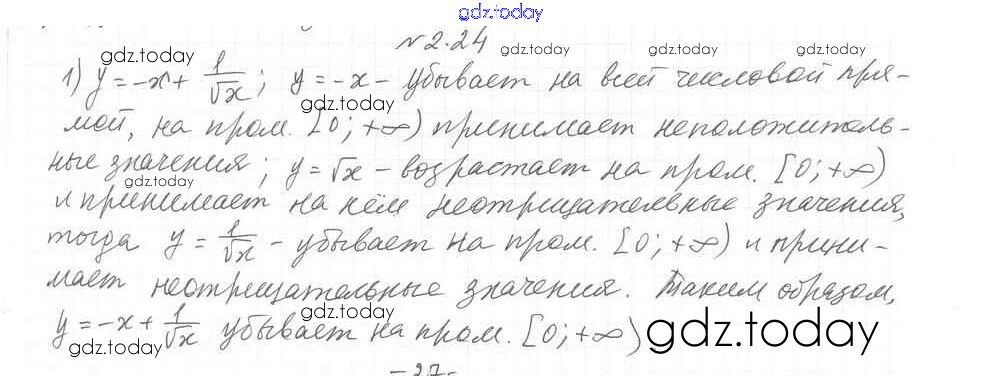 gdz.today
№2.24
gdz.today gdz.today gdz.today
1) y = -x + 1/√x ; y = -x - убывает на всей числовой пря-
gdz.today
мой, на пром. [0; +∞) принимает неположитель-
ные значения; y = √x - возрастает на пром. [0; +∞)
gdz.today
и принимает на нём неотрицательные значения,
тогда y = 1/√x - убывает на пром. [0; +∞) и прини-
мает неотрицательные значения. Таким образом,
gdz.today
y = -x + 1/√x убывает на пром. [0; +∞)
gdz.today gdz.today
-27-